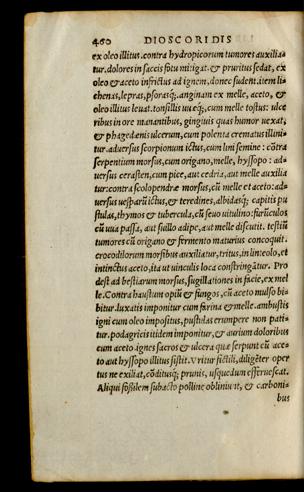 460 DIOSCORIDIS
ex oleo illitus. contra hydropicorum tumores auxilia-
tur. dolores in sacels fotu mitigat. & pruritus sedat, ex
oleo & aceto infrictus ad ignem, donec sudent. item li-
chenas, lepras, psorasq́;. anginam ex melle, aceto, &
oleo illitus leuat. tonsillis uueq́;, cum melle tostus: ulce
ribus in ore manantibus, gingiuis quas humor uexat,
& phagedænis ulcerum, cum polenta crematus illini-
tur. aduersus scorpionum ictus, cum lini semine: cōtra
serpentium morsus, cum origano, melle, hyssopo: ad-
uersus cerasten, cum pice, aut cedria, aut melle auxilia
tur: contra scolopendræ morsus, cū melle et aceto: ad-
uersus uesparū ictus, & teredines, albidasq́; capitis pu
stulas, thymos & tubercula, cū seuo uitulino: furūculos
cū uua passa, aut suillo adipe, aut melle discutit. testiū
tumores cū origano & fermento maturius concoquit.
crocodilorum morsibus auxiliatur, tritus, in linteolo, et
intinctus aceto, ita ut uinculis loca constringātur. Pro
dest ad bestiarum morsus, sugillationes in facie, ex mel
le. Contra haustum opiū & fungos, cū aceto mulso bi-
bitur. luxatis imponitur cum farina & melle. ambustis
igni cum oleo impositus, pustulas erumpere non pati-
tur. podagricis itidem imponitur, & aurium doloribus
cum aceto. ignes sacros & ulcera quæ serpunt cū ace-
to aut hyssopo illitus sistit. Vritur fictili, diligēter oper
tus ne exiliat, cōditusq́; prunis, usquedum efferuescat.
Aliqui fossilem subacto polline obliniunt, & carboni-
bus